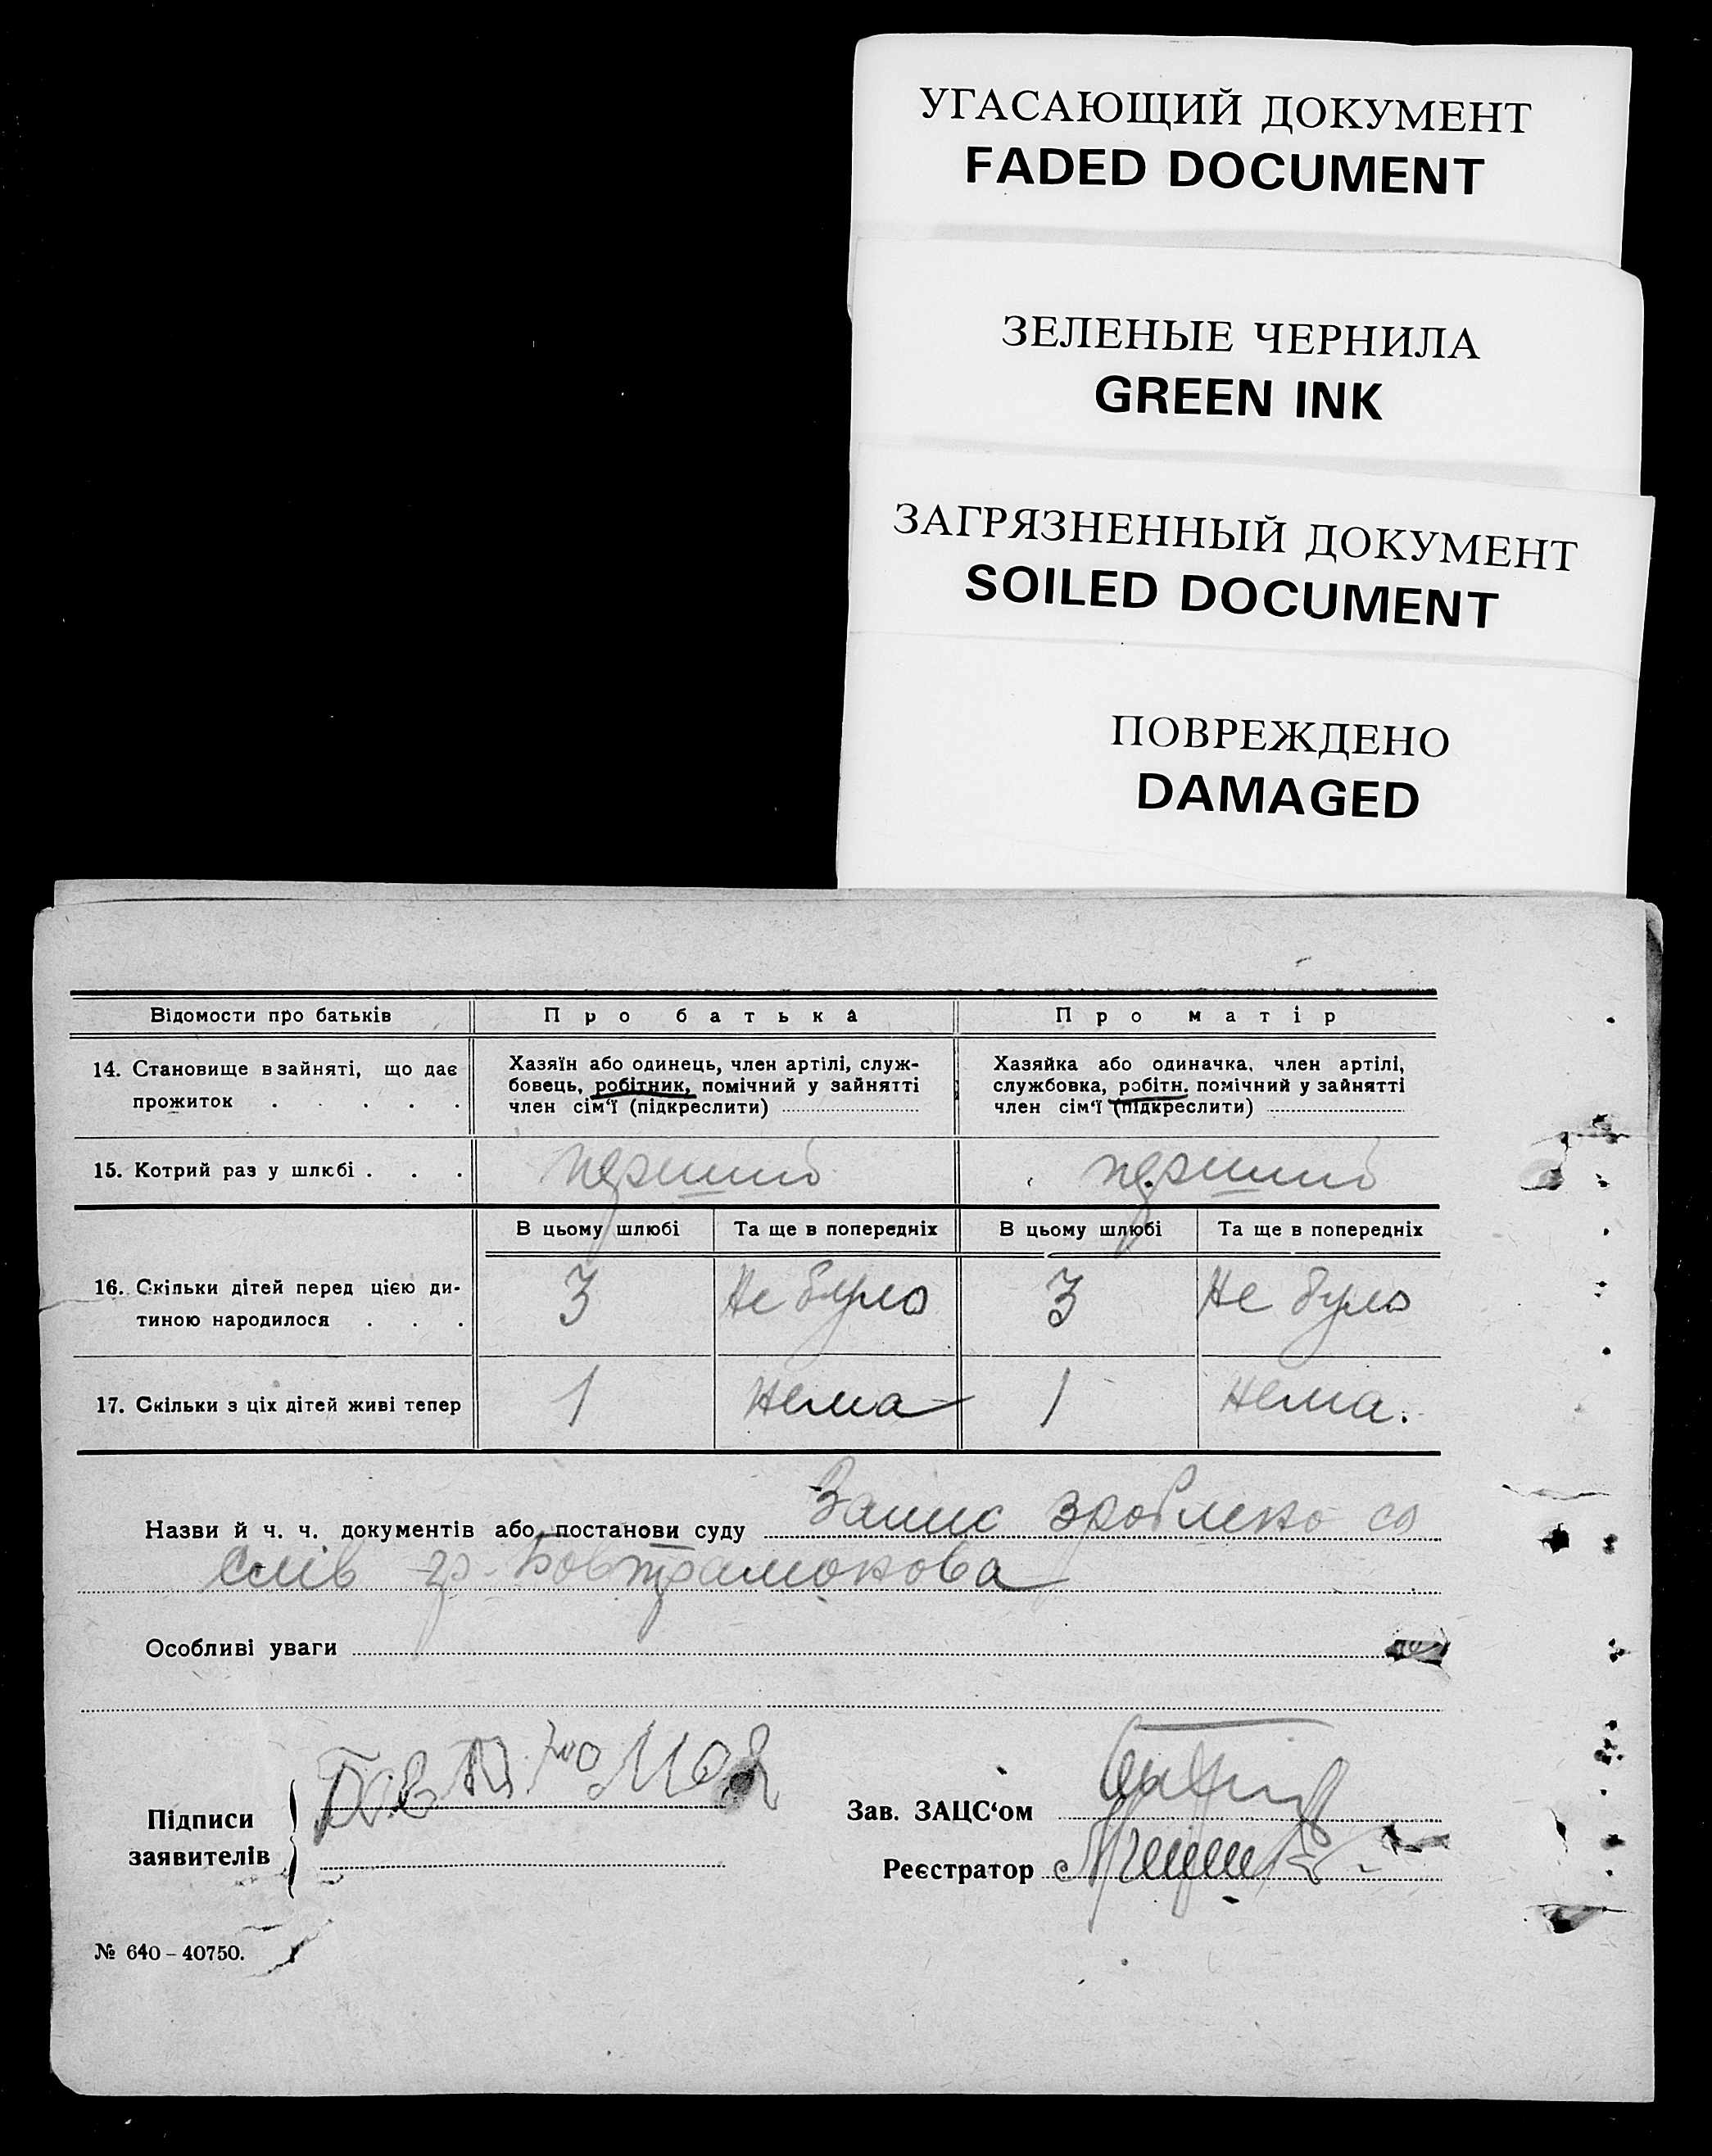 УГАСАЮЩИЙ ДОКУМЕНТ
FADED DOCUMENT
ЗЕЛЕНЫЕ ЧЕРНИЛА
GREEN INK
ЗАГРЯЗНЕННЫЙ ДОКУМЕНТ
SOILED DOCUMENT
ПОВРЕЖДЕНО
DAMAGED
Відомости про батьків Про батька Про матір
14. Становище в зайняті, що дає прожиток . . . . .
Хазяїн або одинець, член артілі, служ-
бовець, робітник, помічний у зайнятті
член сім'ї (підкреслити)
Хазяйка або одиначка, член артілі,
службовка, робітн. помічний у зайнятті
член сім'ї (підкреслити)
15. Котрий раз у шлюбі . . . перший перший
В цьому шлюбі Та ще в попередніх В цьому шлюбі Та ще в попередніх
16. Скільки дітей перед цією ди-
тиною народилося . . . 3 Не було 3 Не було
17. Скільки з ціх дітей живі тепер 1 нема 1 нема.
Назви й ч. ч. документів або постанови суду Запис зроблено со
слів гр.
Особливі уваги
Підписи
заявителів
Зав. ЗАЦС'ом
Реєстратор
№ 640-40750.